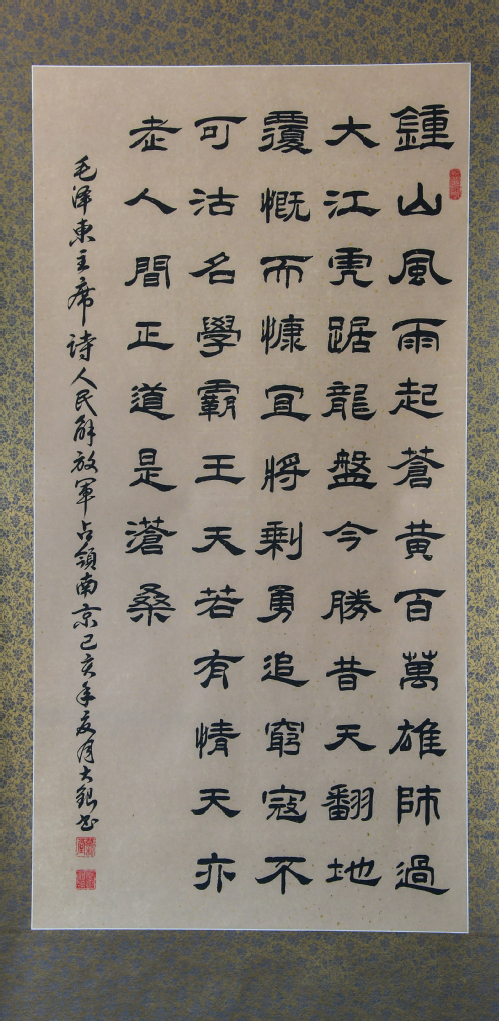 鍾山風雨起蒼黄百萬雄師過
大江虎踞龍盤今勝昔天翻地
覆慨而慷宜將剩勇追窮寇不
可沽名學霸王天若有情天亦
老人間正道是滄桑
毛泽東主席诗人民解放軍占领南京己亥年夏月大銀书